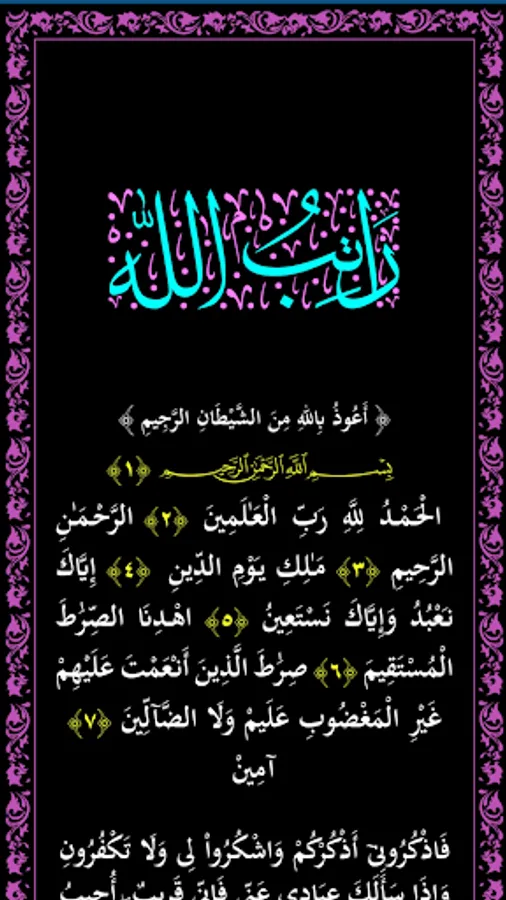 رَاتِبُ اللّٰه
﴿ أَعُوذُ بِاللهِ مِنَ الشَّيْطَانِ الرَّجِيمِ ﴾
بِسْمِ ٱللَّهِ ٱلرَّحْمَٰنِ ٱلرَّحِيمِ ﴿١﴾
الْحَمْدُ لِلَّهِ رَبِّ الْعَٰلَمِينَ ﴿٢﴾ الرَّحْمَٰنِ
الرَّحِيمِ ﴿٣﴾ مَٰلِكِ يَوْمِ الدِّينِ ﴿٤﴾ إِيَّاكَ
نَعْبُدُ وَإِيَّاكَ نَسْتَعِينُ ﴿٥﴾ اهْدِنَا الصِّرَٰطَ
الْمُسْتَقِيمَ ﴿٦﴾ صِرَٰطَ الَّذِينَ أَنْعَمْتَ عَلَيْهِمْ
غَيْرِ الْمَغْضُوبِ عَلَيمْ وَلَا الضَّآلِّينَ ﴿٧﴾
آمِينْ
فَاذْكُرُونِيٓ أَذْكُرْكُمْ وَاشْكُرُواْ لِى وَلَا تَكْفُرُونِ
وَإِذَا سَأَلَكَ عِبَادِى عَنِّى فَإِنِّى قَرِيبٌ، أُجِيبُ